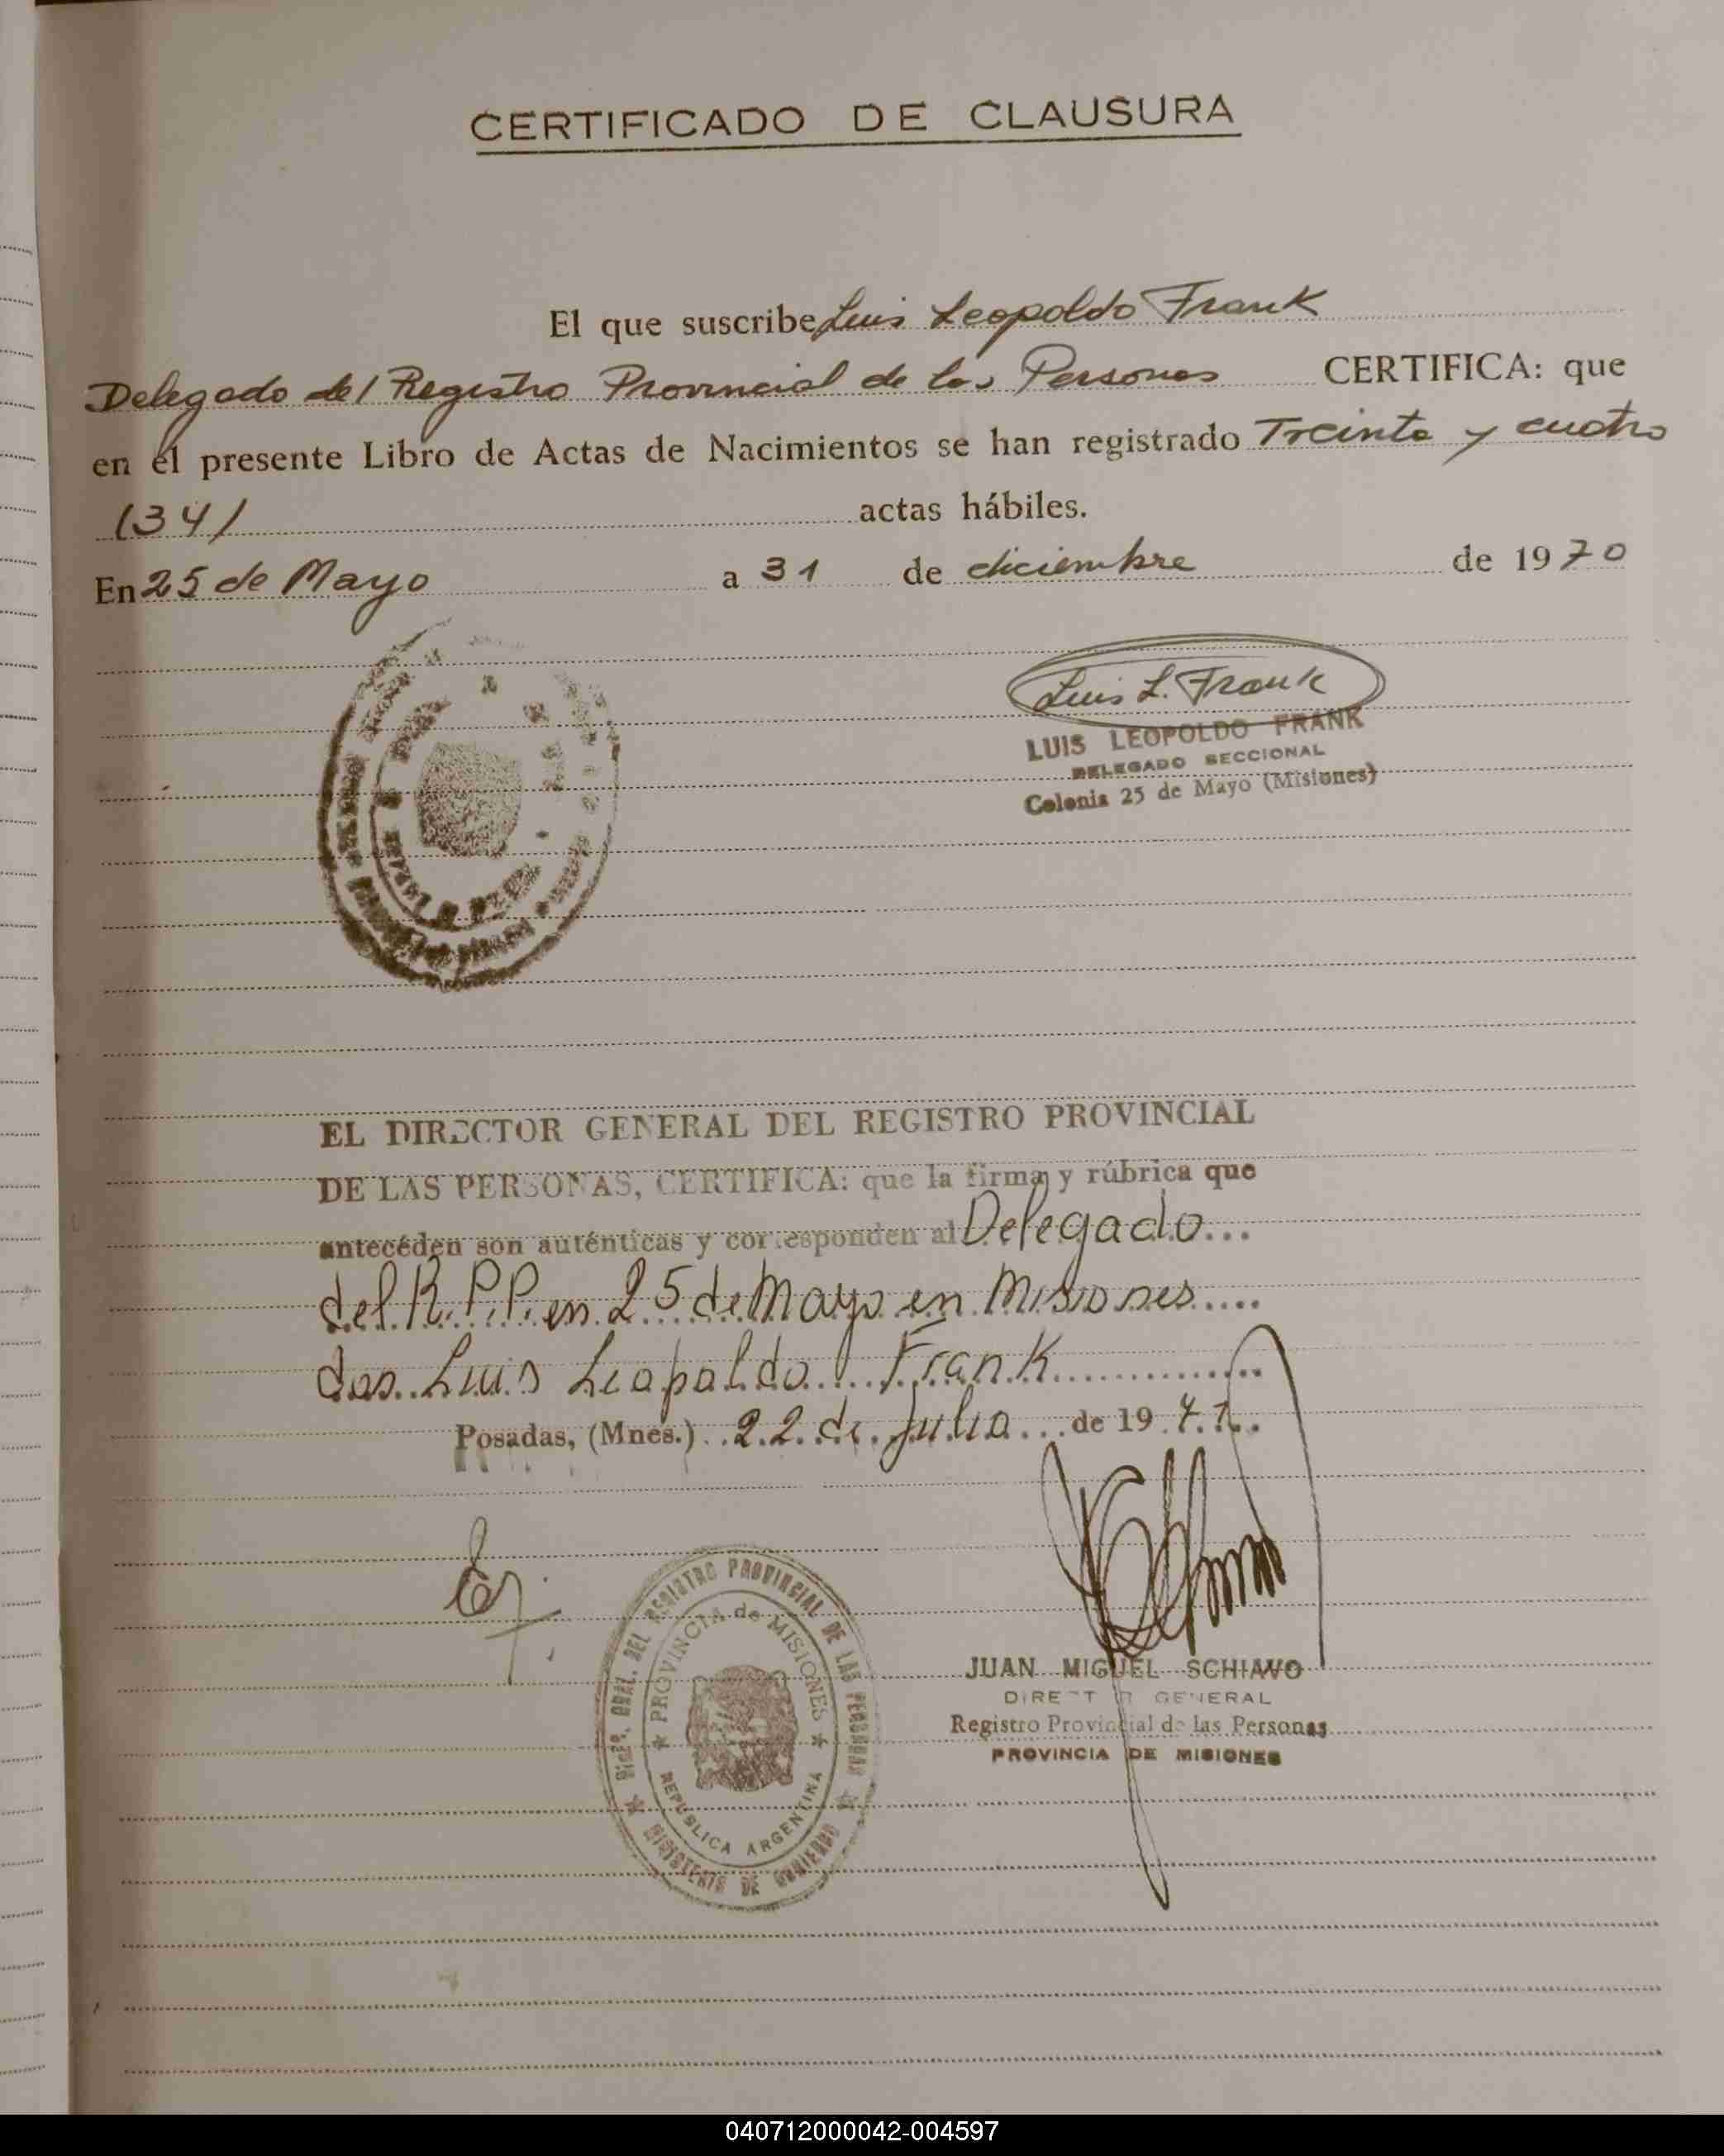 CERTIFICADO DE CLAUSURA
El que suscribe Luis Leopoldo Frank
Delegado del Registro Provincial de las Personas CERTIFICA: que
en el presente Libro de Actas de Nacimientos se han registrado Treinta y cuatro
(34) actas hábiles.
En 25 de Mayo a 31 de diciembre de 1970
Luis L. Frank
LUIS LEOPOLDO FRANK
DELEGADO SECCIONAL
Colonia 25 de Mayo (Misiones)
EL DIRECTOR GENERAL DEL REGISTRO PROVINCIAL
DE LAS PERSONAS, CERTIFICA: que la firma y rúbrica que
anteceden son auténticas y corresponden al Delegado
del R.P.P. en 25 de Mayo en Misiones
don Luis Leopoldo Frank
Posadas, (Mnes.) 22 de Julio de 1971
DIREC. GRAL. DEL REGISTRO PROVINCIAL DE LAS PERSONAS
PROVINCIA de MISIONES
REPUBLICA ARGENTINA
MINISTERIO DE GOBIERNO
JUAN MIGUEL SCHIAVO
DIRECTOR GENERAL
Registro Provincial de las Personas
PROVINCIA DE MISIONES
040712000042-004597